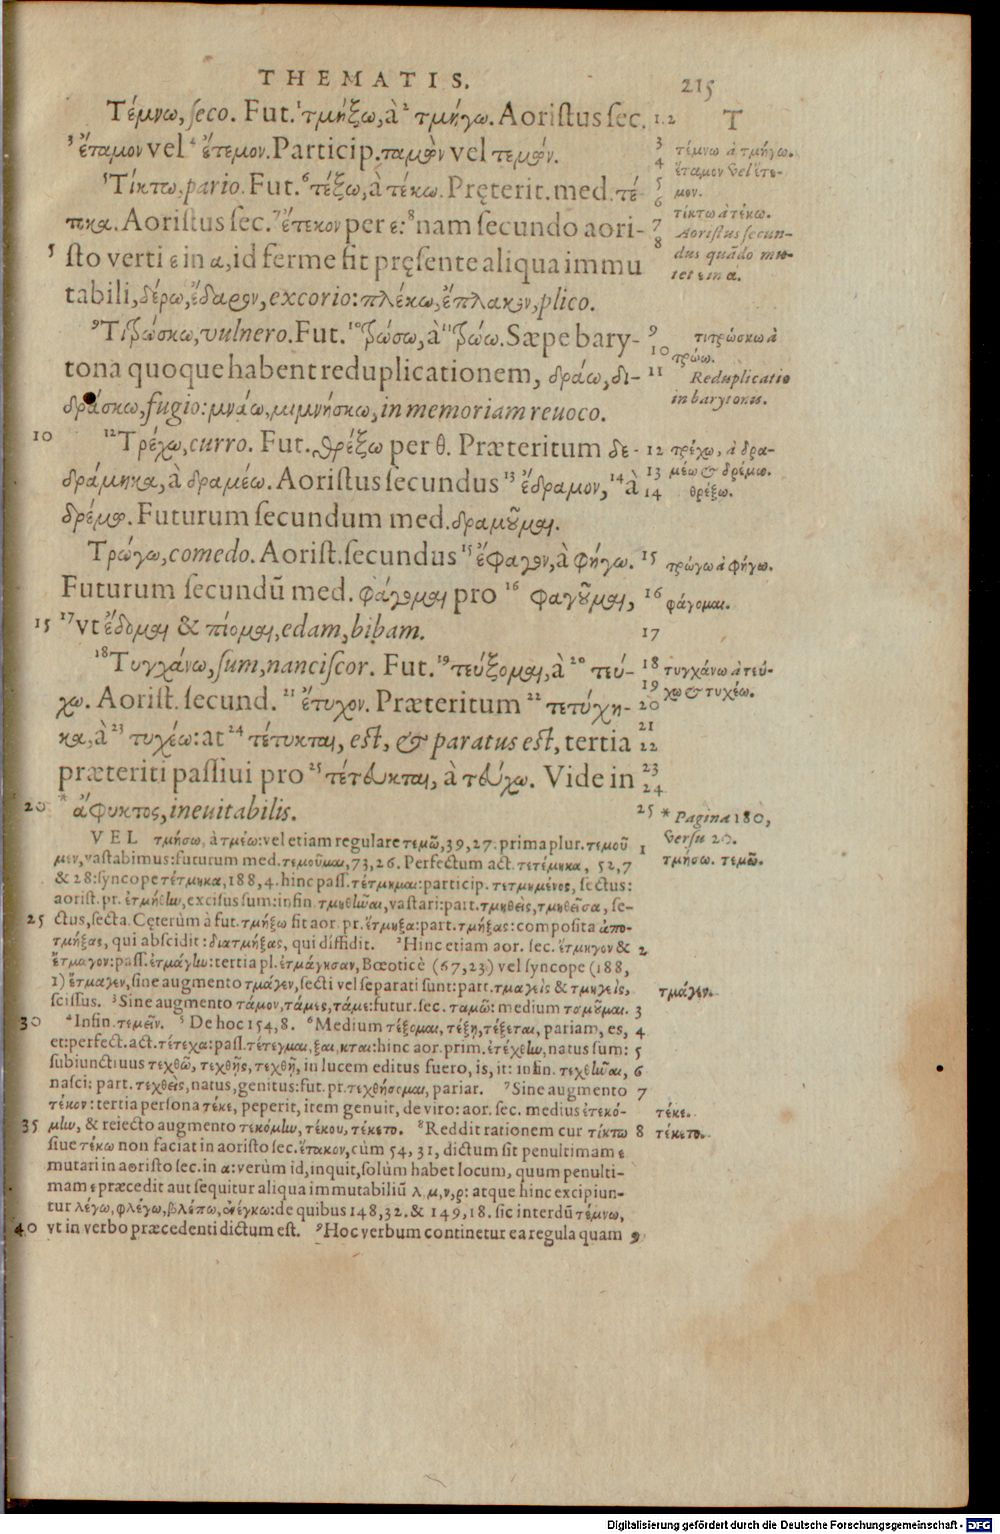 THEMATIS. 215
Τέμνω, ſeco. Fut. ¹τμήξω, à ² τμήγω. Aoriſtus ſec.
³ ἔταμον vel ⁴ ἔτεμον. Particip. ταμὼν vel τεμών.
⁵Τίκτω, pario. Fut. ⁶τέξω, à τέκω. Pręterit. med. τέ-
τοκα. Aoriſtus ſec. ⁷ἔτεκον per ε: ⁸nam ſecundo aori-
5 ſto verti ε in α, id ferme fit pręſente aliqua immu
tabili, δέρω, ἔδαρον, excorio: πλέκω, ἔπλακον, plico.
⁹Τιτρώσκω, vulnero. Fut. ¹⁰τρώσω, à ¹¹τρώω. Sæpe bary-
tona quoque habent reduplicationem, δράω, δι-
δράσκω, fugio: μνάω, μιμνήσκω, in memoriam reuoco.
10 ¹²Τρέχω, curro. Fut. θρέξω per θ. Præteritum δε-
δράμηκα, à δραμέω. Aoriſtus ſecundus ¹³ ἔδραμον, ¹⁴à
δρέμω. Futurum ſecundum med. δραμοῦμαι.
Τρώγω, comedo. Aoriſt. ſecundus ¹⁵ ἔφαγον, à φήγω.
Futurum ſecundū med. φάγομαι pro ¹⁶ φαγοῦμαι,
15 ¹⁷vt ἔδομαι & πίομαι, edam, bibam.
¹⁸Τυγχάνω, ſum, nanciſcor. Fut. ¹⁹τεύξομαι, à ²⁰ τεύ-
χω. Aoriſt. ſecund. ²¹ ἔτυχον. Præteritum ²² τετύχη-
κα, à ²³ τυχέω: at ²⁴ τέτυκται, eſt, & paratus eſt, tertia
præteriti paſſiui pro ²⁵ τέτευκται, à τεύχω. Vide in
20 * ἄφυκτος, ineuitabilis.
VEL τμήσω, à τμέω: vel etiam regulare τεμῶ, 39, 27. prima plur. τεμοῦ 1
μεν, vaſtabimus: futurum med. τεμοῦμαι, 73, 26. Perfectum act. τετέμηκα, 52, 7
& 28: ſyncope τέτμηκα, 188, 4. hinc paſſ. τέτμημαι: particip. τετμημένος, ſectus:
aoriſt. pr. ἐτμήθην, exciſus ſum: infin. τμηθῆναι, vaſtari: part. τμηθεὶς, τμηθεῖσα, ſe-
25 ctus, ſecta. Cęterùm à fut. τμήξω fit aor. pr. ἔτμηξα: part. τμήξας: compoſita ἀπο-
τμήξας, qui abſcidit: διατμήξας, qui diffidit. ²Hinc etiam aor. ſec. ἔτμηγον & 2
ἔτμαγον: paſſ. ἐτμάγην: tertia pl. ἐτμάγησαν, Bœoticè (67, 23) vel ſyncope (188,
1) ἔτμαγεν, ſine augmento τμάγεν, ſecti vel ſeparati ſunt: part. τμαγεὶς & τμηγεὶς,
ſciſſus. ³Sine augmento τάμον, τάμες, τάμε: futur. ſec. ταμῶ: medium ταμοῦμαι. 3
30 ⁴Infin. τεμεῖν. ⁵ De hoc 154, 8. ⁶Medium τέξομαι, τέξῃ, τέξεται, pariam, es, 4
et: perfect. act. τέτεχα: paſſ. τέτεγμαι, ξαι, κται: hinc aor. prim. ἐτέχθην, natus ſum: 5
ſubiunctiuus τεχθῶ, τεχθῇς, τεχθῇ, in lucem editus fuero, is, it: infin. τεχθῆναι, 6
naſci: part. τεχθεὶς, natus, genitus: fut. pr. τεχθήσομαι, pariar. ⁷Sine augmento 7
τέκον: tertia perſona τέκε, peperit, item genuit, de viro: aor. ſec. medius ἐτεκό-
35 μην, & reiecto augmento τεκόμην, τέκου, τέκετο. ⁸Reddit rationem cur τίκτω 8
ſiue τέκω non faciat in aoriſto ſec. ἔτακον, cùm 54, 31, dictum ſit penultimam ε
mutari in aoriſto ſec. in α: verùm id, inquit, ſolùm habet locum, quum penulti-
mam ε præcedit aut ſequitur aliqua immutabiliū λ, μ, ν, ρ: atque hinc excipiun-
tur λέγω, φλέγω, βλέπω, ἐνέγκω: de quibus 148, 32. & 149, 18. ſic interdū τέμνω,
40 vt in verbo præcedenti dictum eſt. ⁹Hoc verbum continetur ea regula quam 9
1.2 T
3 τέμνω à τμήγω.
4 ἔταμον vel ἔτε-
5 μον.
6 τίκτω à τέκω.
7 Aoriſtus ſecun-
8 dus quādo mu-
tet ε in α.
9 τιτρώσκω à
10 τρώω.
11 Reduplicatio
in barytonis.
12 τρέχω, à δρα-
13 μέω & δρέμω.
14 θρέξω.
15 τρώγω à φήγω.
16 φάγομαι.
17
18 τυγχάνω à τεύ-
19 χω & τυχέω.
20
21
22
23
24
25 * Pagina 180,
verſu 20.
τμήσω. τεμῶ.
τμάγεν.
τέκε.
τέκετο.
Digitalisierung gefördert durch die Deutsche Forschungsgemeinschaft - DFG